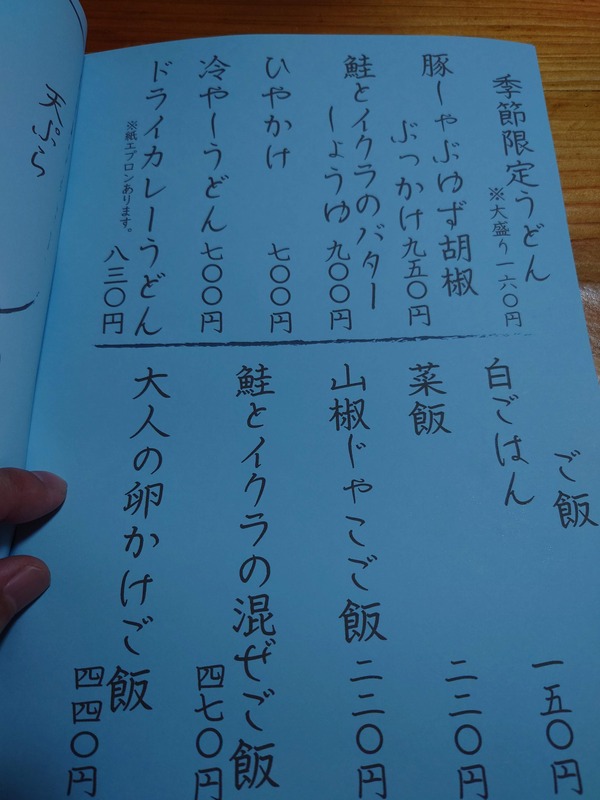 季節限定うどん
※大盛り一六〇円
豚しゃぶゆず胡椒
ぶっかけ 九五〇円
鮭とイクラのバター
しょうゆ 九〇〇円
ひやかけ 七〇〇円
冷やしうどん 七〇〇円
ドライカレーうどん
※紙エプロンあります。
八三〇円
ご飯
白ごはん 一五〇円
菜飯 二二〇円
山椒じゃこご飯 二二〇円
鮭とイクラの混ぜご飯 四七〇円
大人の卵かけご飯 四四〇円
天ぷら